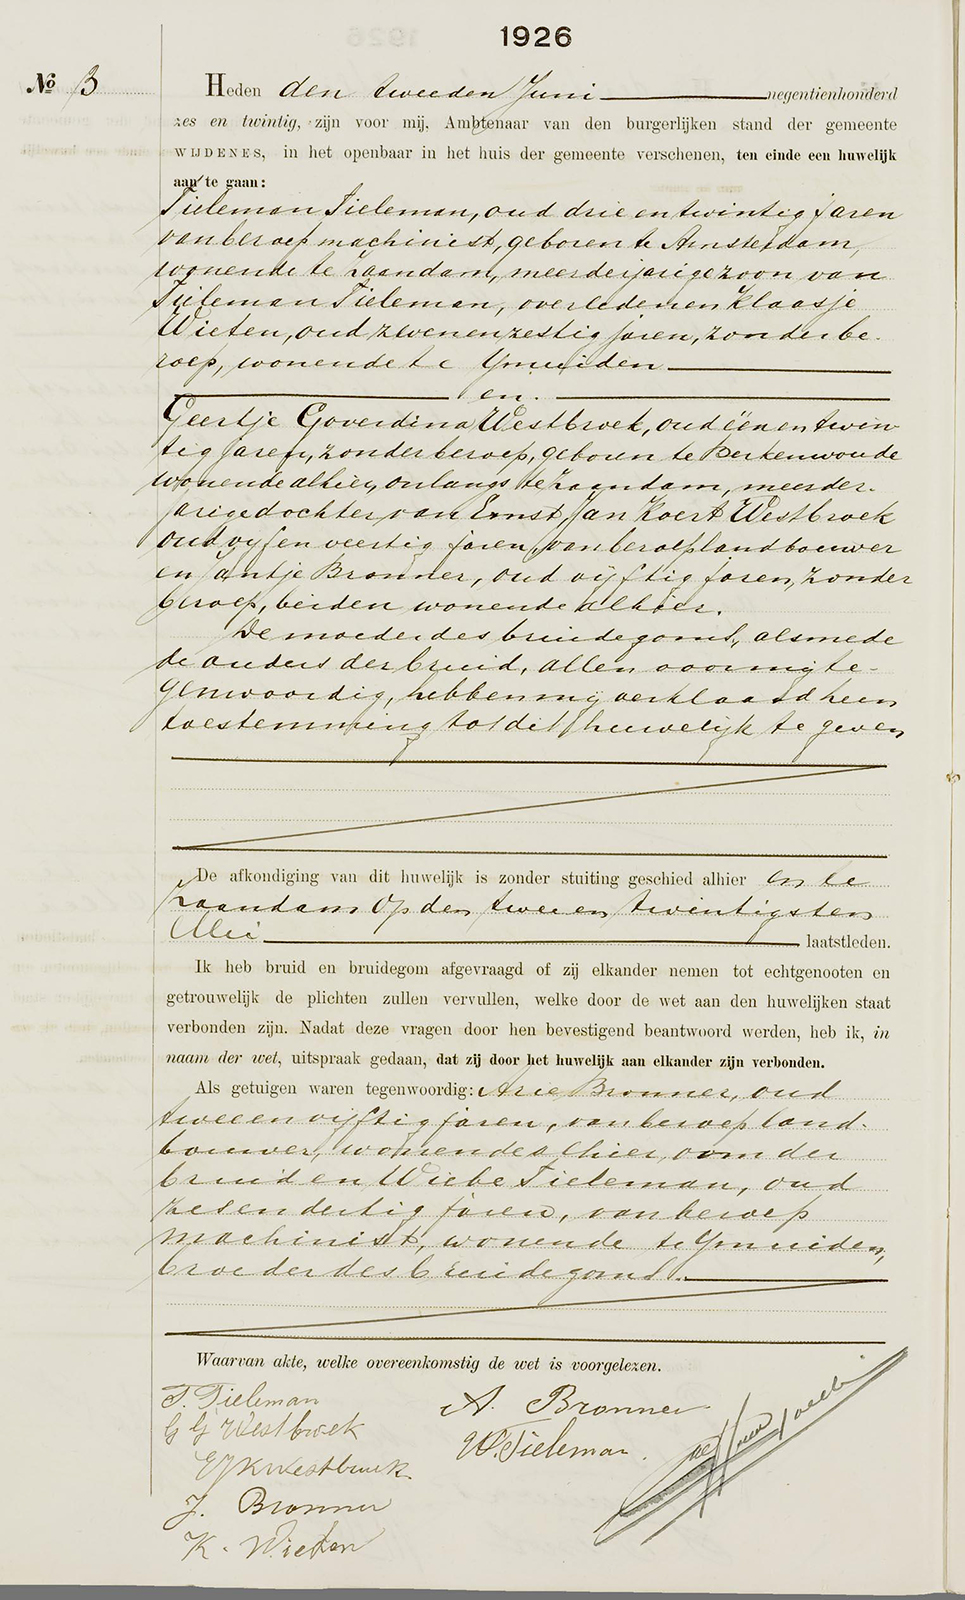 1926
No 3
Heden den tweeden Juni negentienhonderd
zes en twintig, zijn voor mij, Ambtenaar van den burgerlijken stand der gemeente
WIJDENES, in het openbaar in het huis der gemeente verschenen, ten einde een huwelijk
aan te gaan:
Tieleman Tieleman, oud drie en twintig jaren
van beroep machinist, geboren te Amsterdam,
wonende te Zaandam, meerderjarige zoon van
Tieleman Tieleman, overleden en Klaasje
Wieten, oud zevenenzestig jaren, zonder be-
roep, wonende te Ymuiden
en
Geertje Goverdina Westbroek, oud één en twin-
tig jaren, zonder beroep, geboren te Berkenwoude
wonende alhier, onlangs te Zaandam, meerder-
jarige dochter van Ernst Jan Koert Westbroek
oud vijf en veertig jaren, van beroep landbouwer
en Jantje Bronner, oud vijftig jaren, zonder
beroep, beiden wonende alhier.
De moeder des bruidegoms, alsmede
de ouders der bruid, allen voor mij te-
genwoordig, hebben mij verklaard hun
toestemming tot dit huwelijk te geven
De afkondiging van dit huwelijk is zonder stuiting geschied alhier en te
Zaandam op den twee en twintigsten
Mei laatstleden.
Ik heb bruid en bruidegom afgevraagd of zij elkander nemen tot echtgenooten en
getrouwelijk de plichten zullen vervullen, welke door de wet aan den huwelijken staat
verbonden zijn. Nadat deze vragen door hen bevestigend beantwoord werden, heb ik, in
naam der wet, uitspraak gedaan, dat zij door het huwelijk aan elkander zijn verbonden.
Als getuigen waren tegenwoordig: Arie Bronner, oud
twee en vijftig jaren, van beroep land-
bouwer, wonende alhier, oom der
bruid en Wiebe Tieleman, oud
zesendertig jaren, van beroep
machinist, wonende te Ymuiden,
broeder des bruidegoms.
Waarvan akte, welke overeenkomstig de wet is voorgelezen.
T. Tieleman
G G Westbroek
EJKWestbroek
J. Bronner
K. Wieten
A. Bronner
W. Tieleman.